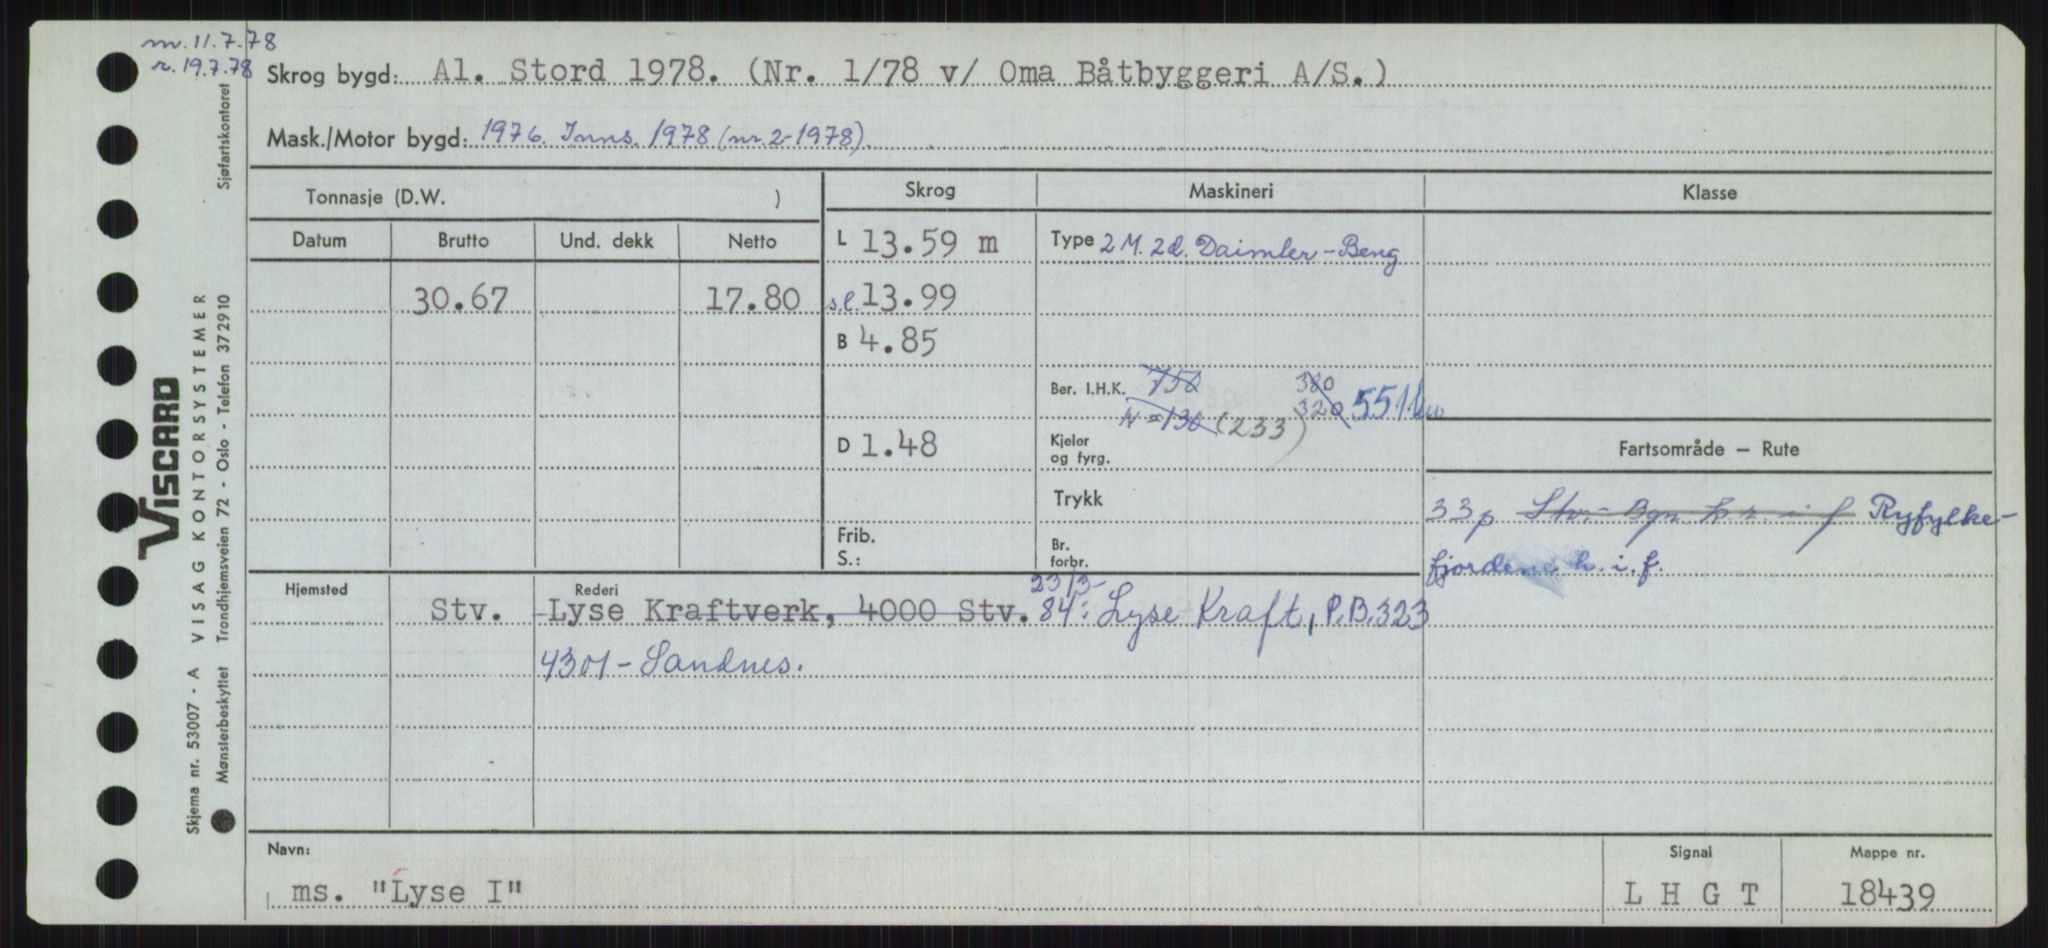 m. 11.7.78
r. 19.7.78
Skrog bygd: Al. Stord 1978. (Nr. 1/78 v/ Oma Båtbyggeri A/S.)
Mask./Motor bygd: 1976. Inns. 1978 (nr. 2-1978).
Sjøfartskontoret
VISCARD
VISAG KONTORSYSTEMER
Trondhjemsveien 72 - Oslo - Telefon 372910
Skjema nr. 53007 - A
Mønsterbeskyttet
Tonnasje (D.W. )
Skrog
Maskineri
Klasse
Datum Brutto Und. dekk Netto
30.67 17.80
L 13.59 m
s.l. 13.99
B 4.85
D 1.48
Frib.
S.:
Type 2 M. 2d. Daimler-Beng
Ber. I.H.K. 750 380
N = 130 (233) 320 551 kw
Kjeler
og fyrg.
Trykk
Br.
forbr.
Fartsområde — Rute
33p Stv.- Bgn i f Ryfylke-
fjordene h. i. f.
Hjemsted
Rederi
23/3-
Stv. Lyse Kraftverk, 4000 Stv. 84: Lyse Kraft, P.B. 323
4301 - Sandnes.
Navn:
ms. "Lyse I"
Signal
L H G T
Mappe nr.
18439